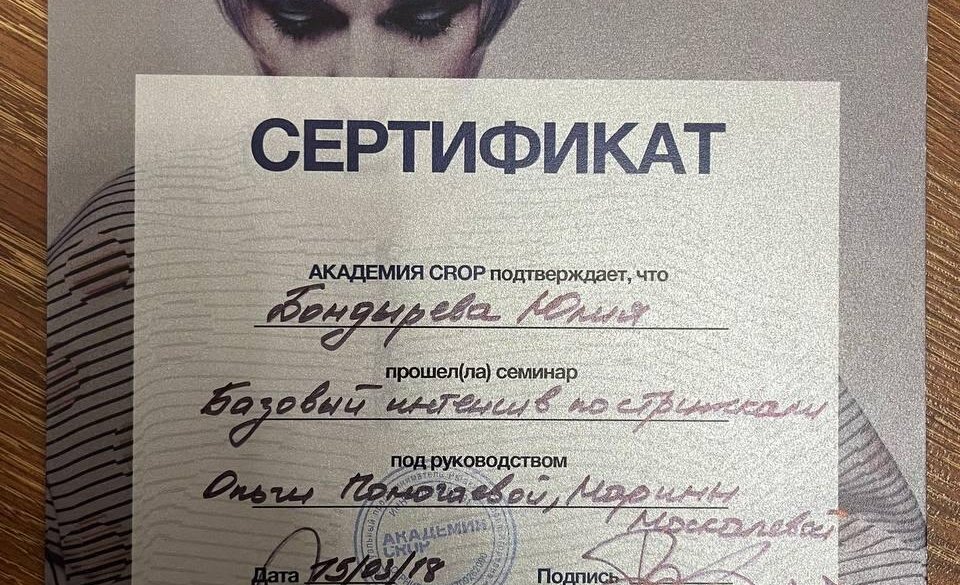 СЕРТИФИКАТ
АКАДЕМИЯ CROP подтверждает, что
Бондырева Юлия
прошел(ла) семинар
Базовый интенсив по стрижкам
под руководством
Ольги Помогаевой, Марины
АКАДЕМИЯ
CROP
Дата 15/03/18 Подпись